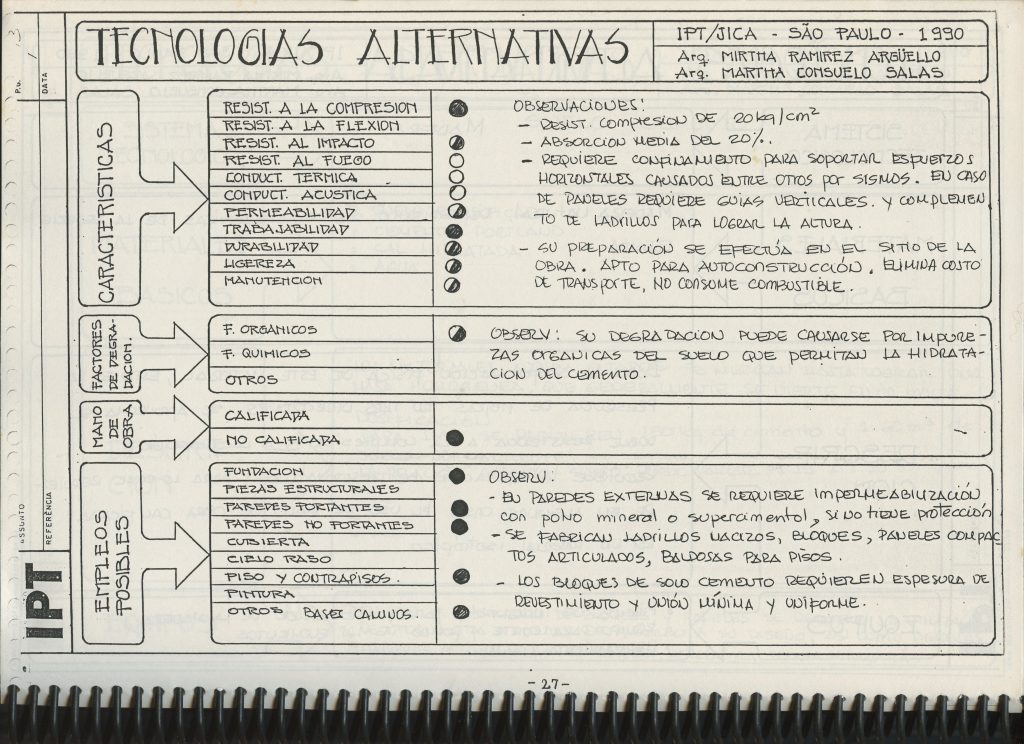 TECNOLOGIAS ALTERNATIVAS
IPT/JICA - SÃO PAULO - 1990
Arq. MIRTHA RAMIREZ ARGÜELLO
Arq. MARTHA CONSUELO SALAS
Pág.
DATA
CARACTERISTICAS
RESIST. A LA COMPRESION
RESIST. A LA FLEXION
RESIST. AL IMPACTO
RESIST. AL FUEGO
CONDUCT. TERMICA
CONDUCT. ACUSTICA
PERMEABILIDAD
TRABAJABILIDAD
DURABILIDAD
LIGEREZA
MANUTENCION
OBSERVACIONES:
- RESIST. COMPRESION DE 20 kg/cm²
- ABSORCION MEDIA DEL 20%.
- REQUIERE CONFINAMIENTO PARA SOPORTAR ESFUERZOS
HORIZONTALES CAUSADOS ENTRE OTROS POR SISMOS. EN CASO
DE PANELES REQUIERE GUIAS VERTICALES. Y COMPLEMEN
TO DE LADRILLOS PARA LOGRAR LA ALTURA.
- SU PREPARACIÓN SE EFECTÚA EN EL SITIO DE LA
OBRA. APTO PARA AUTOCONSTRUCCIÓN. ELIMINA COSTO
DE TRANSPORTE, NO CONSUME COMBUSTIBLE.
FACTORES
DE DEGRA-
DACION.
F. ORGANICOS
F. QUIMICOS
OTROS
OBSERV: SU DEGRADACION PUEDE CAUSARSE POR IMPURE-
ZAS ORGANICAS DEL SUELO QUE PERMITAN LA HIDRATA-
CION DEL CEMENTO.
MANO
DE
OBRA
CALIFICADA
NO CALIFICADA
EMPLEOS
POSIBLES
FUNDACION
PIEZAS ESTRUCTURALES
PAREDES PORTANTES
PAREDES NO PORTANTES
CUBIERTA
CIELO RASO
PISO Y CONTRAPISOS.
PINTURA
OTROS BASES CAMINOS.
OBSERV.
- EN PAREDES EXTERNAS SE REQUIERE IMPERMEABILIZACIÓN
CON POLVO MINERAL O SUPERCIMENTOL, SI NO TIENE PROTECCIÓN
- SE FABRICAN LADRILLOS MACIZOS, BLOQUES, PANELES COMPAC
TOS ARTICULADOS, BALDOSAS PARA PISOS.
- LOS BLOQUES DE SOLO CEMENTO REQUIEREN ESPESURA DE
REVESTIMIENTO Y UNIÓN MÍNIMA Y UNIFORME.
ASSUNTO
REFERÊNCIA
IPT
- 27 -